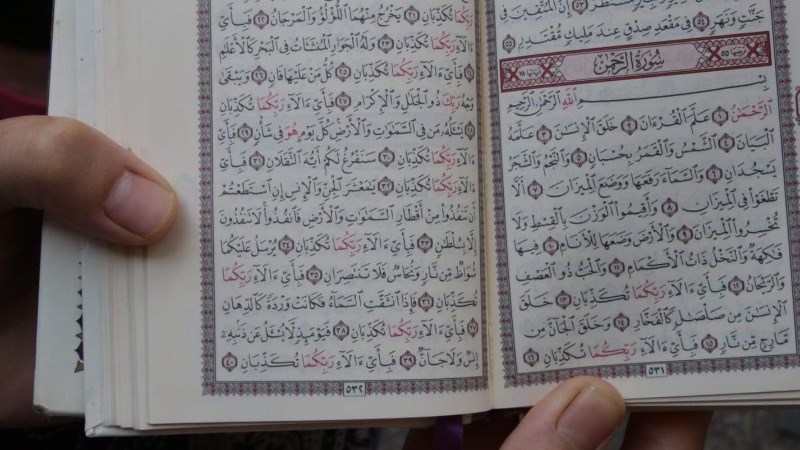 إِنَّ الْمُتَّقِينَ فِى
جَنَّٰتٍ وَنَهَرٍ ٥٤ فِى مَقْعَدِ صِدْقٍ عِندَ مَلِيكٍ مُّقْتَدِرٍ ٥٥
سُورَةُ الرَّحْمٰن
بِسْمِ اللَّهِ الرَّحْمَٰنِ الرَّحِيمِ
الرَّحْمَٰنُ ١ عَلَّمَ الْقُرْءَانَ ٢ خَلَقَ الْإِنسَٰنَ ٣ عَلَّمَهُ
الْبَيَانَ ٤ الشَّمْسُ وَالْقَمَرُ بِحُسْبَانٍ ٥ وَالنَّجْمُ وَالشَّجَرُ
يَسْجُدَانِ ٦ وَالسَّمَآءَ رَفَعَهَا وَوَضَعَ الْمِيزَانَ ٧ أَلَّا
تَطْغَوْا۟ فِى الْمِيزَانِ ٨ وَأَقِيمُوا۟ الْوَزْنَ بِالْقِسْطِ وَلَا
تُخْسِرُوا۟ الْمِيزَانَ ٩ وَالْأَرْضَ وَضَعَهَا لِلْأَنَامِ ١٠ فِيهَا
فَٰكِهَةٌ وَالنَّخْلُ ذَاتُ الْأَكْمَامِ ١١ وَالْحَبُّ ذُو الْعَصْفِ
وَالرَّيْحَانُ ١٢ فَبِأَىِّ ءَالَآءِ رَبِّكُمَا تُكَذِّبَانِ ١٣ خَلَقَ
الْإِنسَٰنَ مِن صَلْصَٰلٍ كَالْفَخَّارِ ١٤ وَخَلَقَ الْجَآنَّ مِن
مَّارِجٍ مِّن نَّارٍ ١٥ فَبِأَىِّ ءَالَآءِ رَبِّكُمَا تُكَذِّبَانِ ١٦
٥٣١
رَبِّكُمَا تُكَذِّبَانِ ٢١ يَخْرُجُ مِنْهُمَا اللُّؤْلُؤُ وَالْمَرْجَانُ ٢٢ فَبِأَىِّ
ءَالَآءِ رَبِّكُمَا تُكَذِّبَانِ ٢٣ وَلَهُ الْجَوَارِ الْمُنشَـَٔاتُ فِى الْبَحْرِ كَالْأَعْلَٰمِ
٢٤ فَبِأَىِّ ءَالَآءِ رَبِّكُمَا تُكَذِّبَانِ ٢٥ كُلُّ مَنْ عَلَيْهَا فَانٍ ٢٦ وَيَبْقَىٰ
وَجْهُ رَبِّكَ ذُو الْجَلَٰلِ وَالْإِكْرَامِ ٢٧ فَبِأَىِّ ءَالَآءِ رَبِّكُمَا تُكَذِّبَانِ
٢٨ يَسْـَٔلُهُ مَن فِى السَّمَٰوَٰتِ وَالْأَرْضِ كُلَّ يَوْمٍ هُوَ فِى شَأْنٍ ٢٩ فَبِأَىِّ
ءَالَآءِ رَبِّكُمَا تُكَذِّبَانِ ٣٠ سَنَفْرُغُ لَكُمْ أَيُّهَ الثَّقَلَانِ ٣١ فَبِأَىِّ
ءَالَآءِ رَبِّكُمَا تُكَذِّبَانِ ٣٢ يَٰمَعْشَرَ الْجِنِّ وَالْإِنسِ إِنِ اسْتَطَعْتُمْ
أَن تَنفُذُوا۟ مِنْ أَقْطَارِ السَّمَٰوَٰتِ وَالْأَرْضِ فَانفُذُوا۟ لَا تَنفُذُونَ
إِلَّا بِسُلْطَٰنٍ ٣٣ فَبِأَىِّ ءَالَآءِ رَبِّكُمَا تُكَذِّبَانِ ٣٤ يُرْسَلُ عَلَيْكُمَا
شُوَاظٌ مِّن نَّارٍ وَنُحَاسٌ فَلَا تَنتَصِرَانِ ٣٥ فَبِأَىِّ ءَالَآءِ رَبِّكُمَا
تُكَذِّبَانِ ٣٦ فَإِذَا انشَقَّتِ السَّمَآءُ فَكَانَتْ وَرْدَةً كَالدِّهَانِ
٣٧ فَبِأَىِّ ءَالَآءِ رَبِّكُمَا تُكَذِّبَانِ ٣٨ فَيَوْمَئِذٍ لَّا يُسْـَٔلُ عَن ذَنۢبِهِ
إِنسٌ وَلَا جَآنٌّ ٣٩ فَبِأَىِّ ءَالَآءِ رَبِّكُمَا تُكَذِّبَانِ ٤٠
٥٣٢